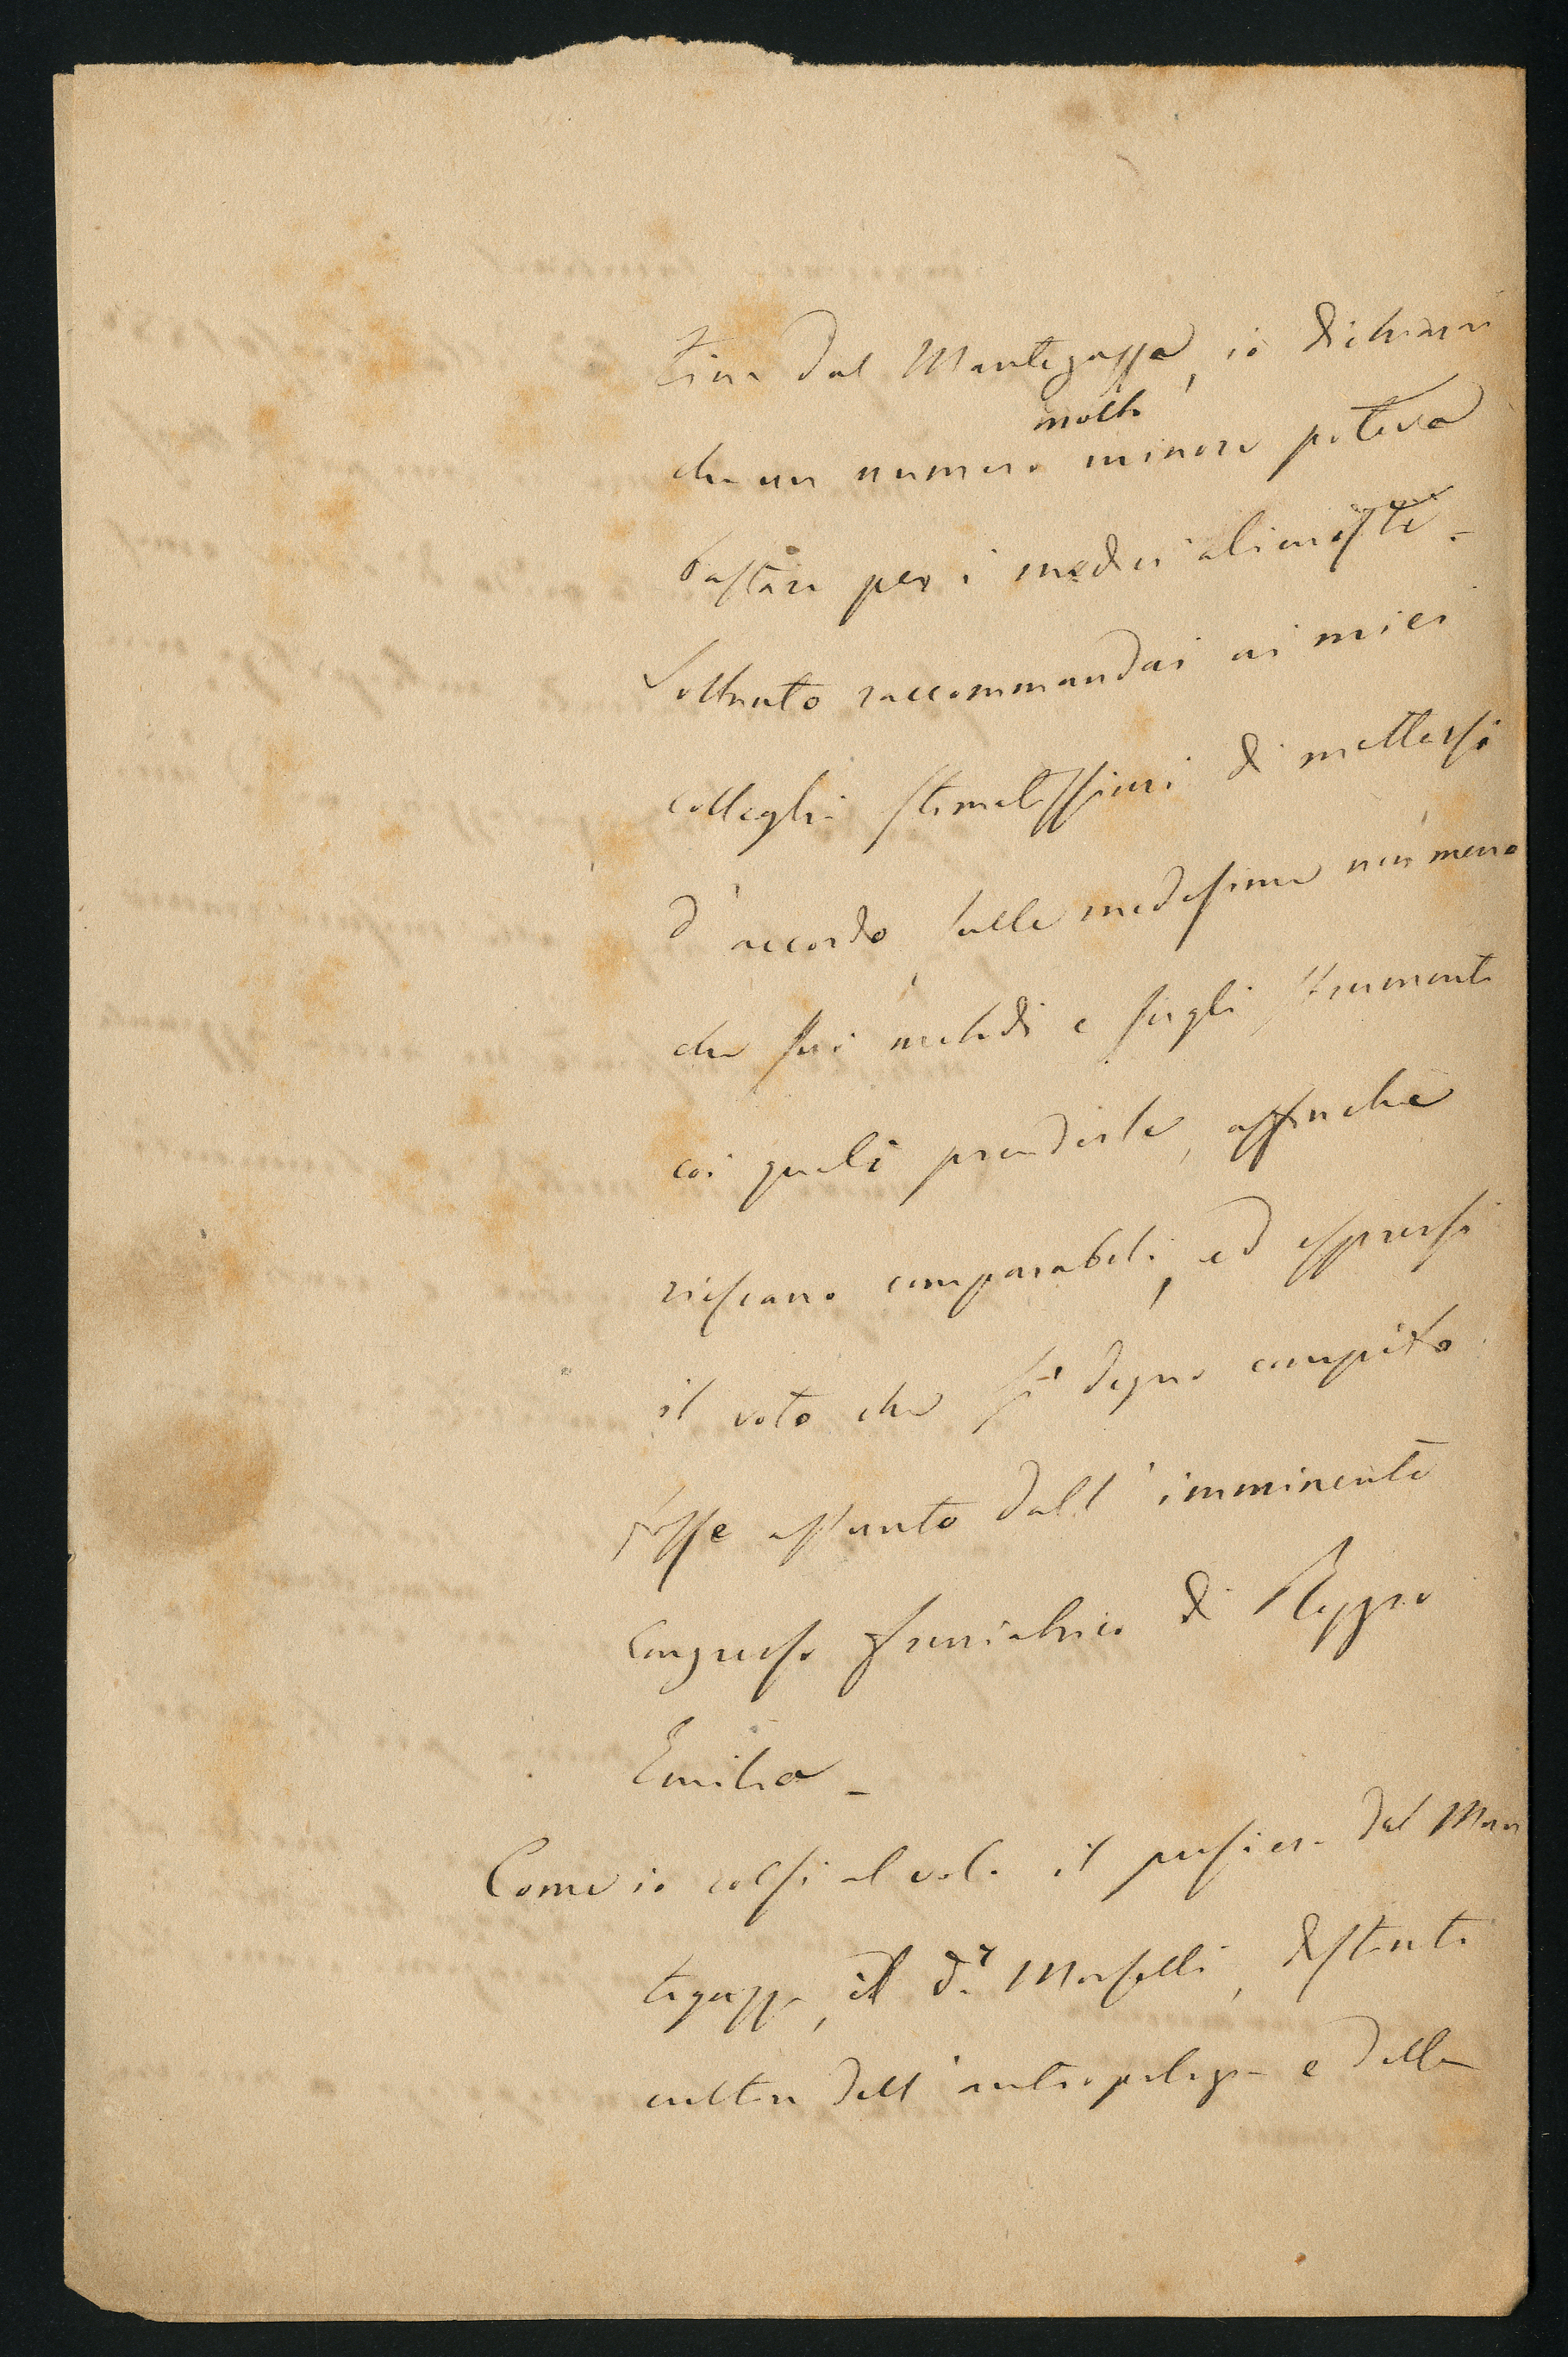 tine dal Mantegazza, io dichiarai
molto
che un numero minore poteva
bastare per i medici alienisti. -
Soltanto raccommandai ai miei
colleghi stimatissimi di mettersi
d'accordo, sulle medesime non meno
che sui metodi e sugli strumenti
coi quali prenderle, affinchè
riescano comparabili, ed espressi
il voto che sì degno compito
fosse assunto dall'imminente
Congresso freniatrico di Reggio
Emilia -
Come io colsi al volo il pensiero del Man
tegazza, il d.r Morselli, distinto
cultore dell'antropologia e della